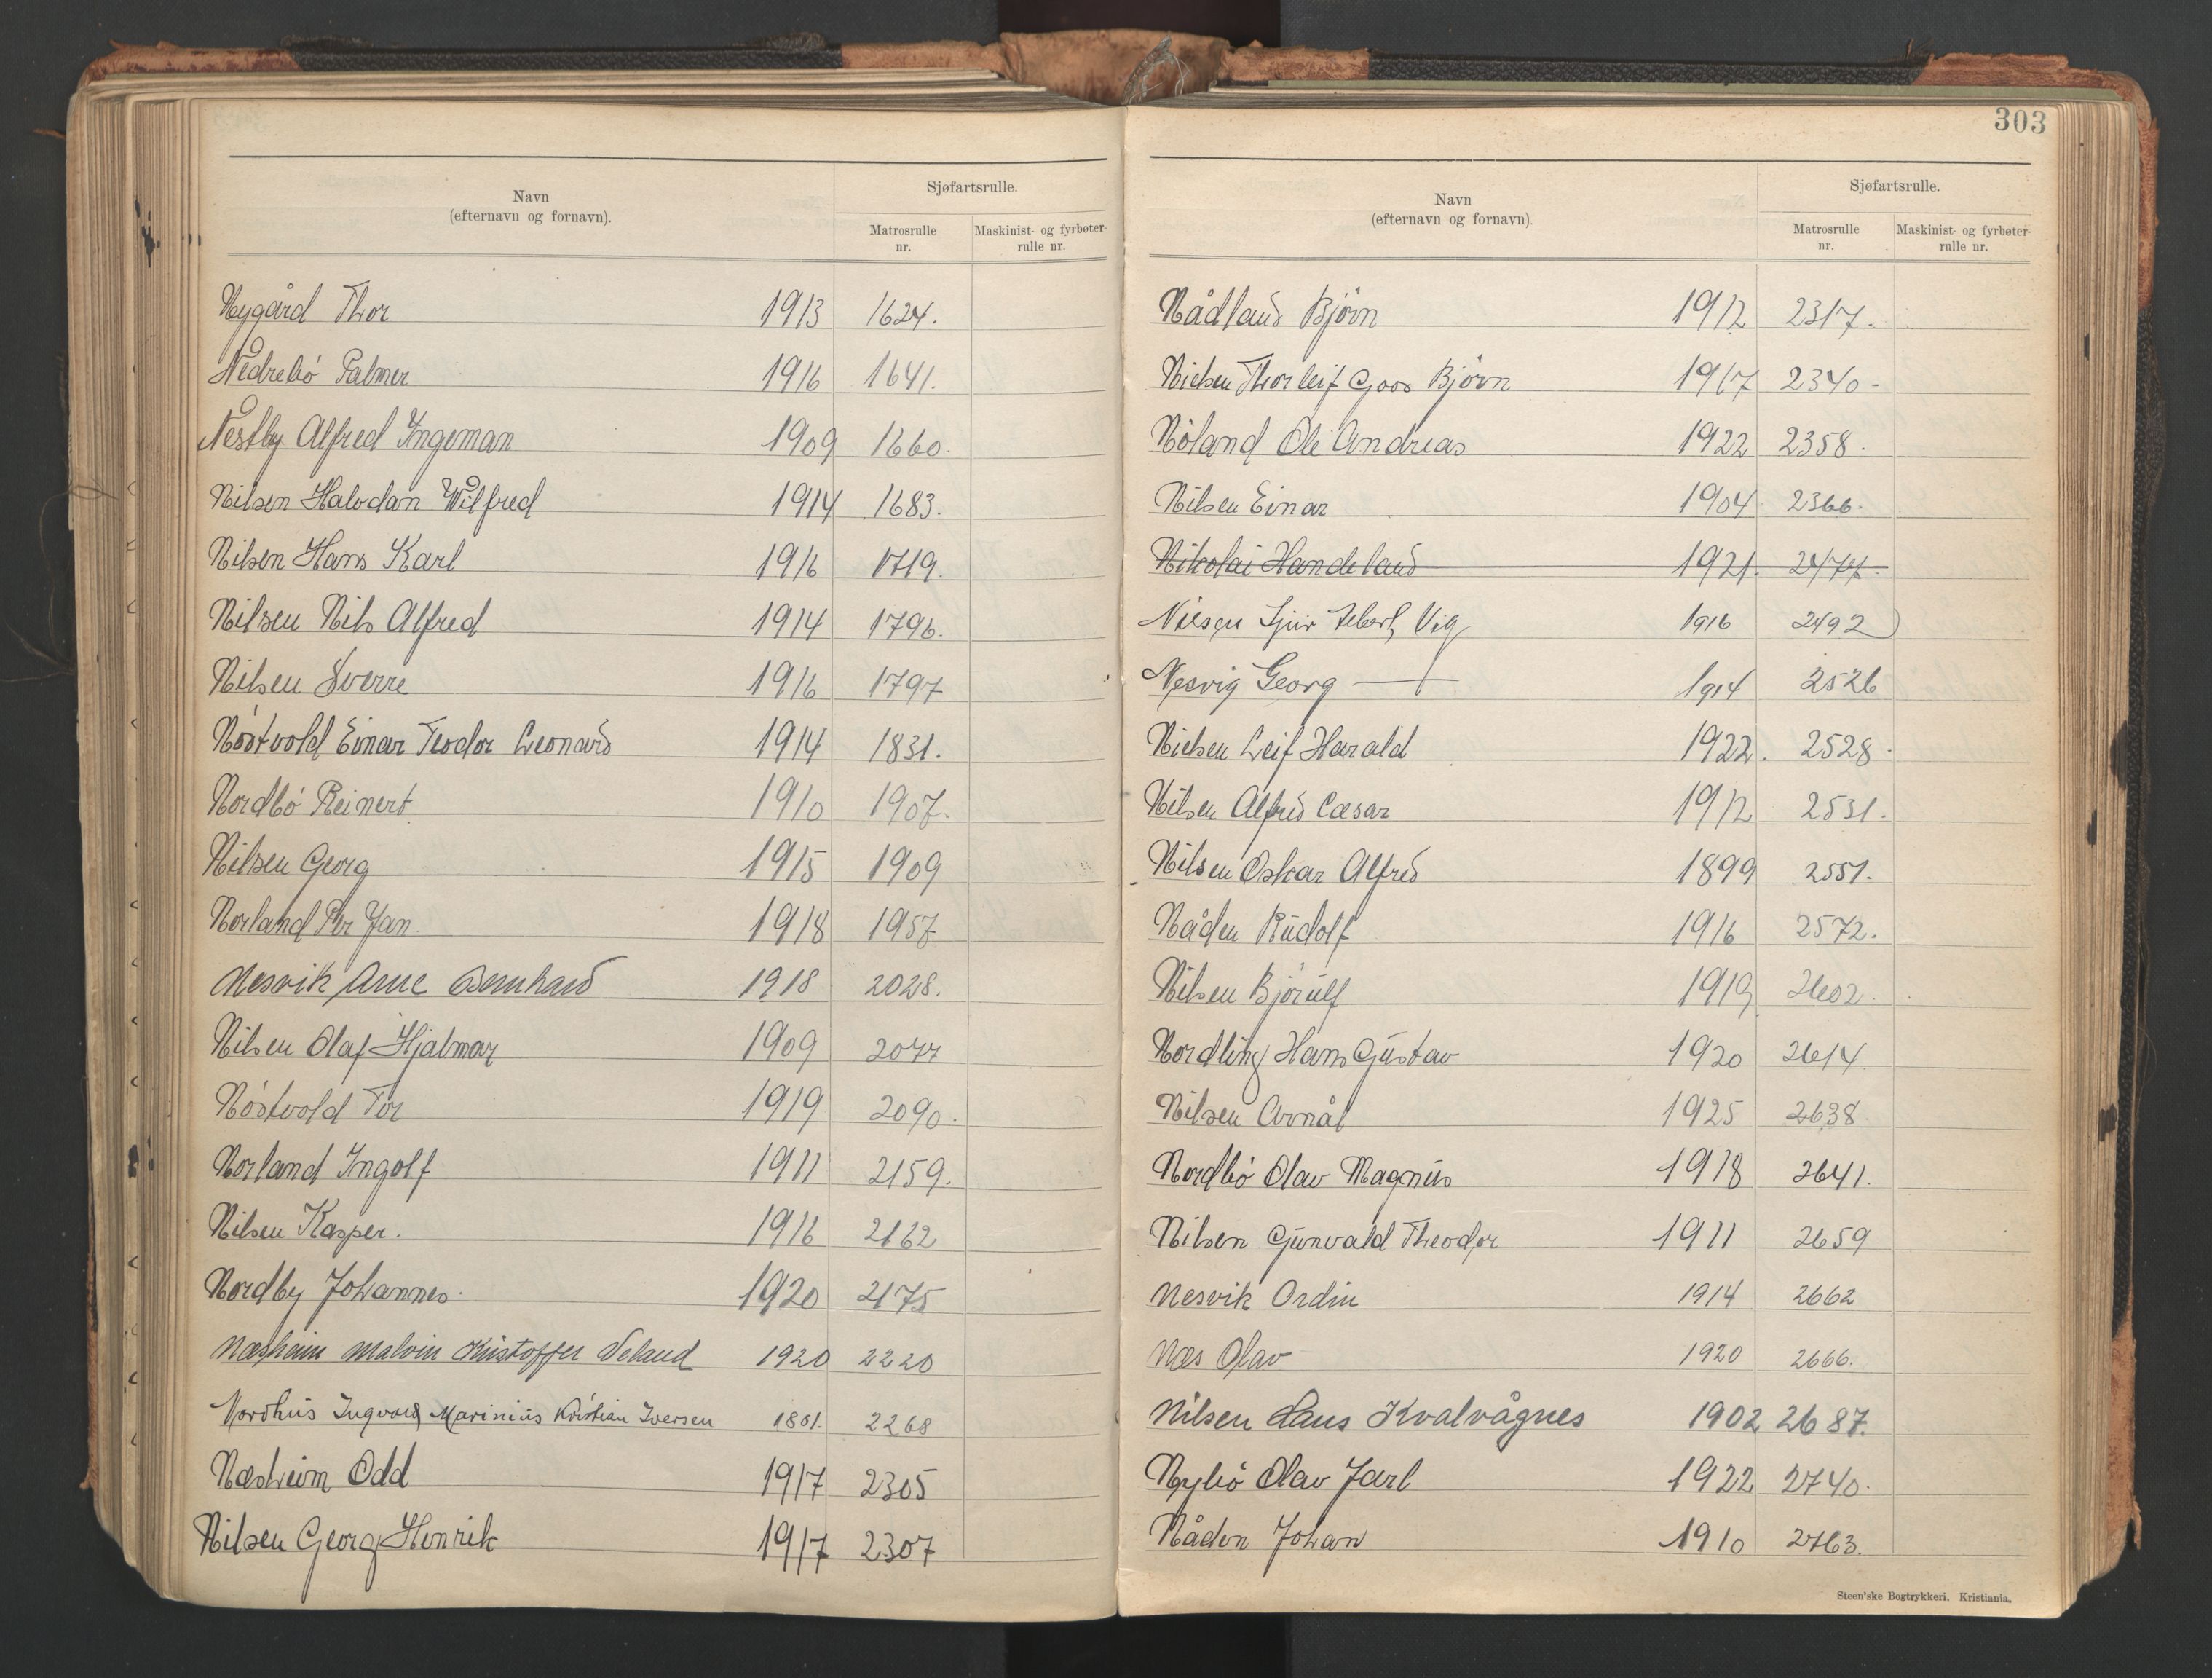 Navn
(efternavn og fornavn).
Sjøfartsrulle.
Matrosrulle nr.
Maskinist- og fyrbøter-rulle nr.
Nygård Thor 1913 1624.
Nedrebö Palmer 1916 1641.
Nestby Alfred Ingeman 1909 1660.
Nilsen Halvdan Wilfred 1914 1683.
Nilsen Hans Karl 1916 1719.
Nilsen Nils Alfred 1914 1796.
Nilsen Sverre 1916 1797
Nöstvold Einar Teodor Leonard 1914 1831.
Nordbö Reinert 1910 1907.
Nilsen Georg 1915 1909
Norland Per Jan 1918 1957
Nesvik Arne Bernhard 1918 2028.
Nilsen Olaf Hjalmar 1909 2077
Nöstvold Tor 1919 2090.
Norland Ingolf 1911 2159.
Nilsen Kasper. 1916 2162
Nordby Johannes. 1920 2175
Næsheim Malvin Kristoffer Veland 1920 2220
Nordhus Ingvald Marinius Kristian Iversen 1801. 2268
Næsheim Odd 1917 2305
Nilsen Georg Henrik 1917 2307
303
Navn
(efternavn og fornavn).
Sjøfartsrulle.
Matrosrulle nr.
Maskinist- og fyrbøter-rulle nr.
Nådland Björn 1912 2317.
Nielsen Thorleif Goos Björn 1917 2340-
Nöland Ole Andreas 1922 2358.
Nilsen Einar 1904 2366.
Nikolai Handeland 1921. 2477.
Nilsen Sjur Vig 1916 2492
Nesvig Georg 1914 2526
Nielsen Leif Harald 1922. 2528.
Nilsen Alfred Cæsar 1912 2531.
Nilsen Oskar Alfred 1899 2551.
Nåden Rudolf 1916 2572.
Nilsen Björulf 1919 2602.
Nordling Hans Gustav 1920 2614
Nilsen Arnål 1925 2638.
Nordbö Olav Magnus 1918 2641.
Nilsen Gunvald Theodor 1911 2659
Nesvik Ordin 1914 2662
Næs Olav 1920 2666.
Nilsen Laus Kvalvågnes 1902 2687.
Nybö Olav Jarl 1922 2740.
Nåden Johan 1910 2763.
Steen'ske Bogtrykkeri. Kristiania.